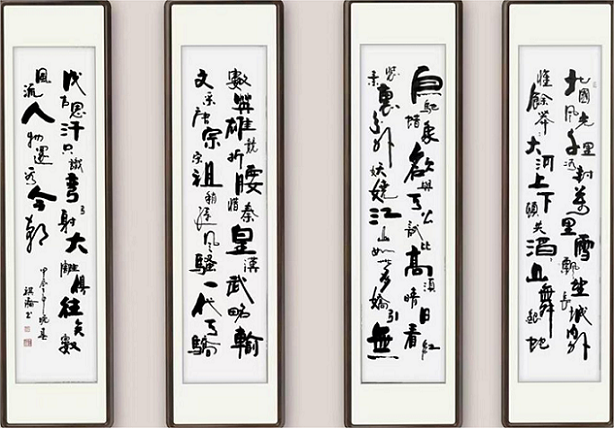 北國風光千里冰封萬里雪飄望長城內外
惟餘莽莽大河上下頓失滔滔山舞銀蛇
原馳蠟象欲與天公試比高須晴日看紅
裝素裹分外妖嬈江山如此多嬌引無
數英雄競折腰惜秦皇漢武略輸
文采唐宗宋祖稍遜風騷一代天驕
成吉思汗只識彎弓射大雕俱往矣數
風流人物還看今朝